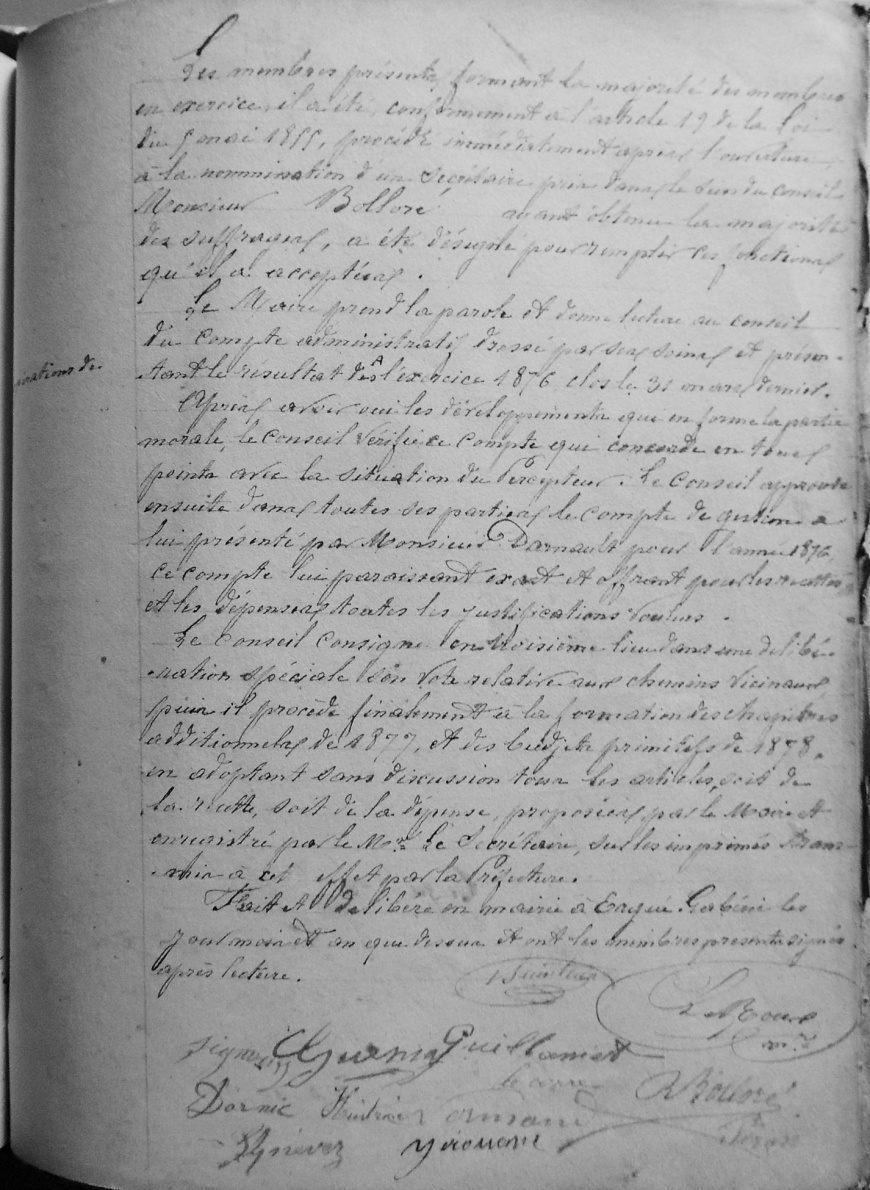 Les membres présents, formant la majorité des membres
en exercice, il a été, conformement à l'article 19 de la Loi
du 5 mai 1855, procédé immédiatement après l'ouverture,
à la nommination d'un Secrétaire pris dans le sein du conseil.
Monsieur Bolloré ayant obtenu la majorité
des suffrages, a été désigné pour remplir ces fonctions
qu'il a acceptées.
Le Maire prend la parole et donne lecture au conseil
du compte administratif dressé par ses soins et présen-
tant le resultat de l'exercice 1876 clos le 31 mars dernier.
Après avoir oui les développements que en forme la partie
morale, le conseil vérifie ce compte qui concorde en tous
points avec la situation du Percepteur. Le Conseil approuve
ensuite dans toutes ses parties le compte de gestion a
lui présenté par Monsieur Darnault pour l'année 1876,
ce compte lui paraissant exact et offrant pour les recettes
et les dépenses toutes les justifications voulues.
Le Conseil consigne en troisième lieu dans une delibé-
-ration spéciale son vote relative aux chemins vicinaux
puis il procède finalement à la formation des chapitres
additionnels de 1877, et des budjets primitifs de 1878,
en adoptant sans discussion tous les articles, soit de
la recette, soit de la dépense, proposés par le Maire et
enregistré par le Mr. Le Secrétaire, sur les imprimés trans-
-mis à cet effet par la Préfecture.
Fait et délibéré en mairie à Ergué-Gabéric les
jour mois et an que dessus et ont les membres presents signés
après lecture.
Le Roux
Guillamet
Bolloré
Dornic